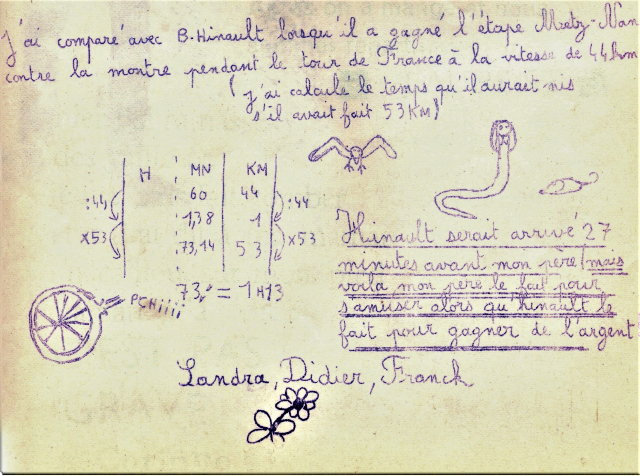 j'ai comparé avec B. Hinault lorsqu'il a gagné l'étape Metz-Nan
contre la montre pendant le tour de France à la vitesse de 44km
(j'ai calculé le temps qu'il aurait mis
s'il avait fait 53KM)
H MN KM
60 44
:44 :44
1,38 1
x53 x53
73,14 53
73, = 1H13
PCHiiii
Hinault serait arrivé 27
minutes avant mon père/mais
voila mon père le fait pour
s'amuser alors qu'hinault le
fait pour gagner de l'argent
Sandra, Didier, Franck